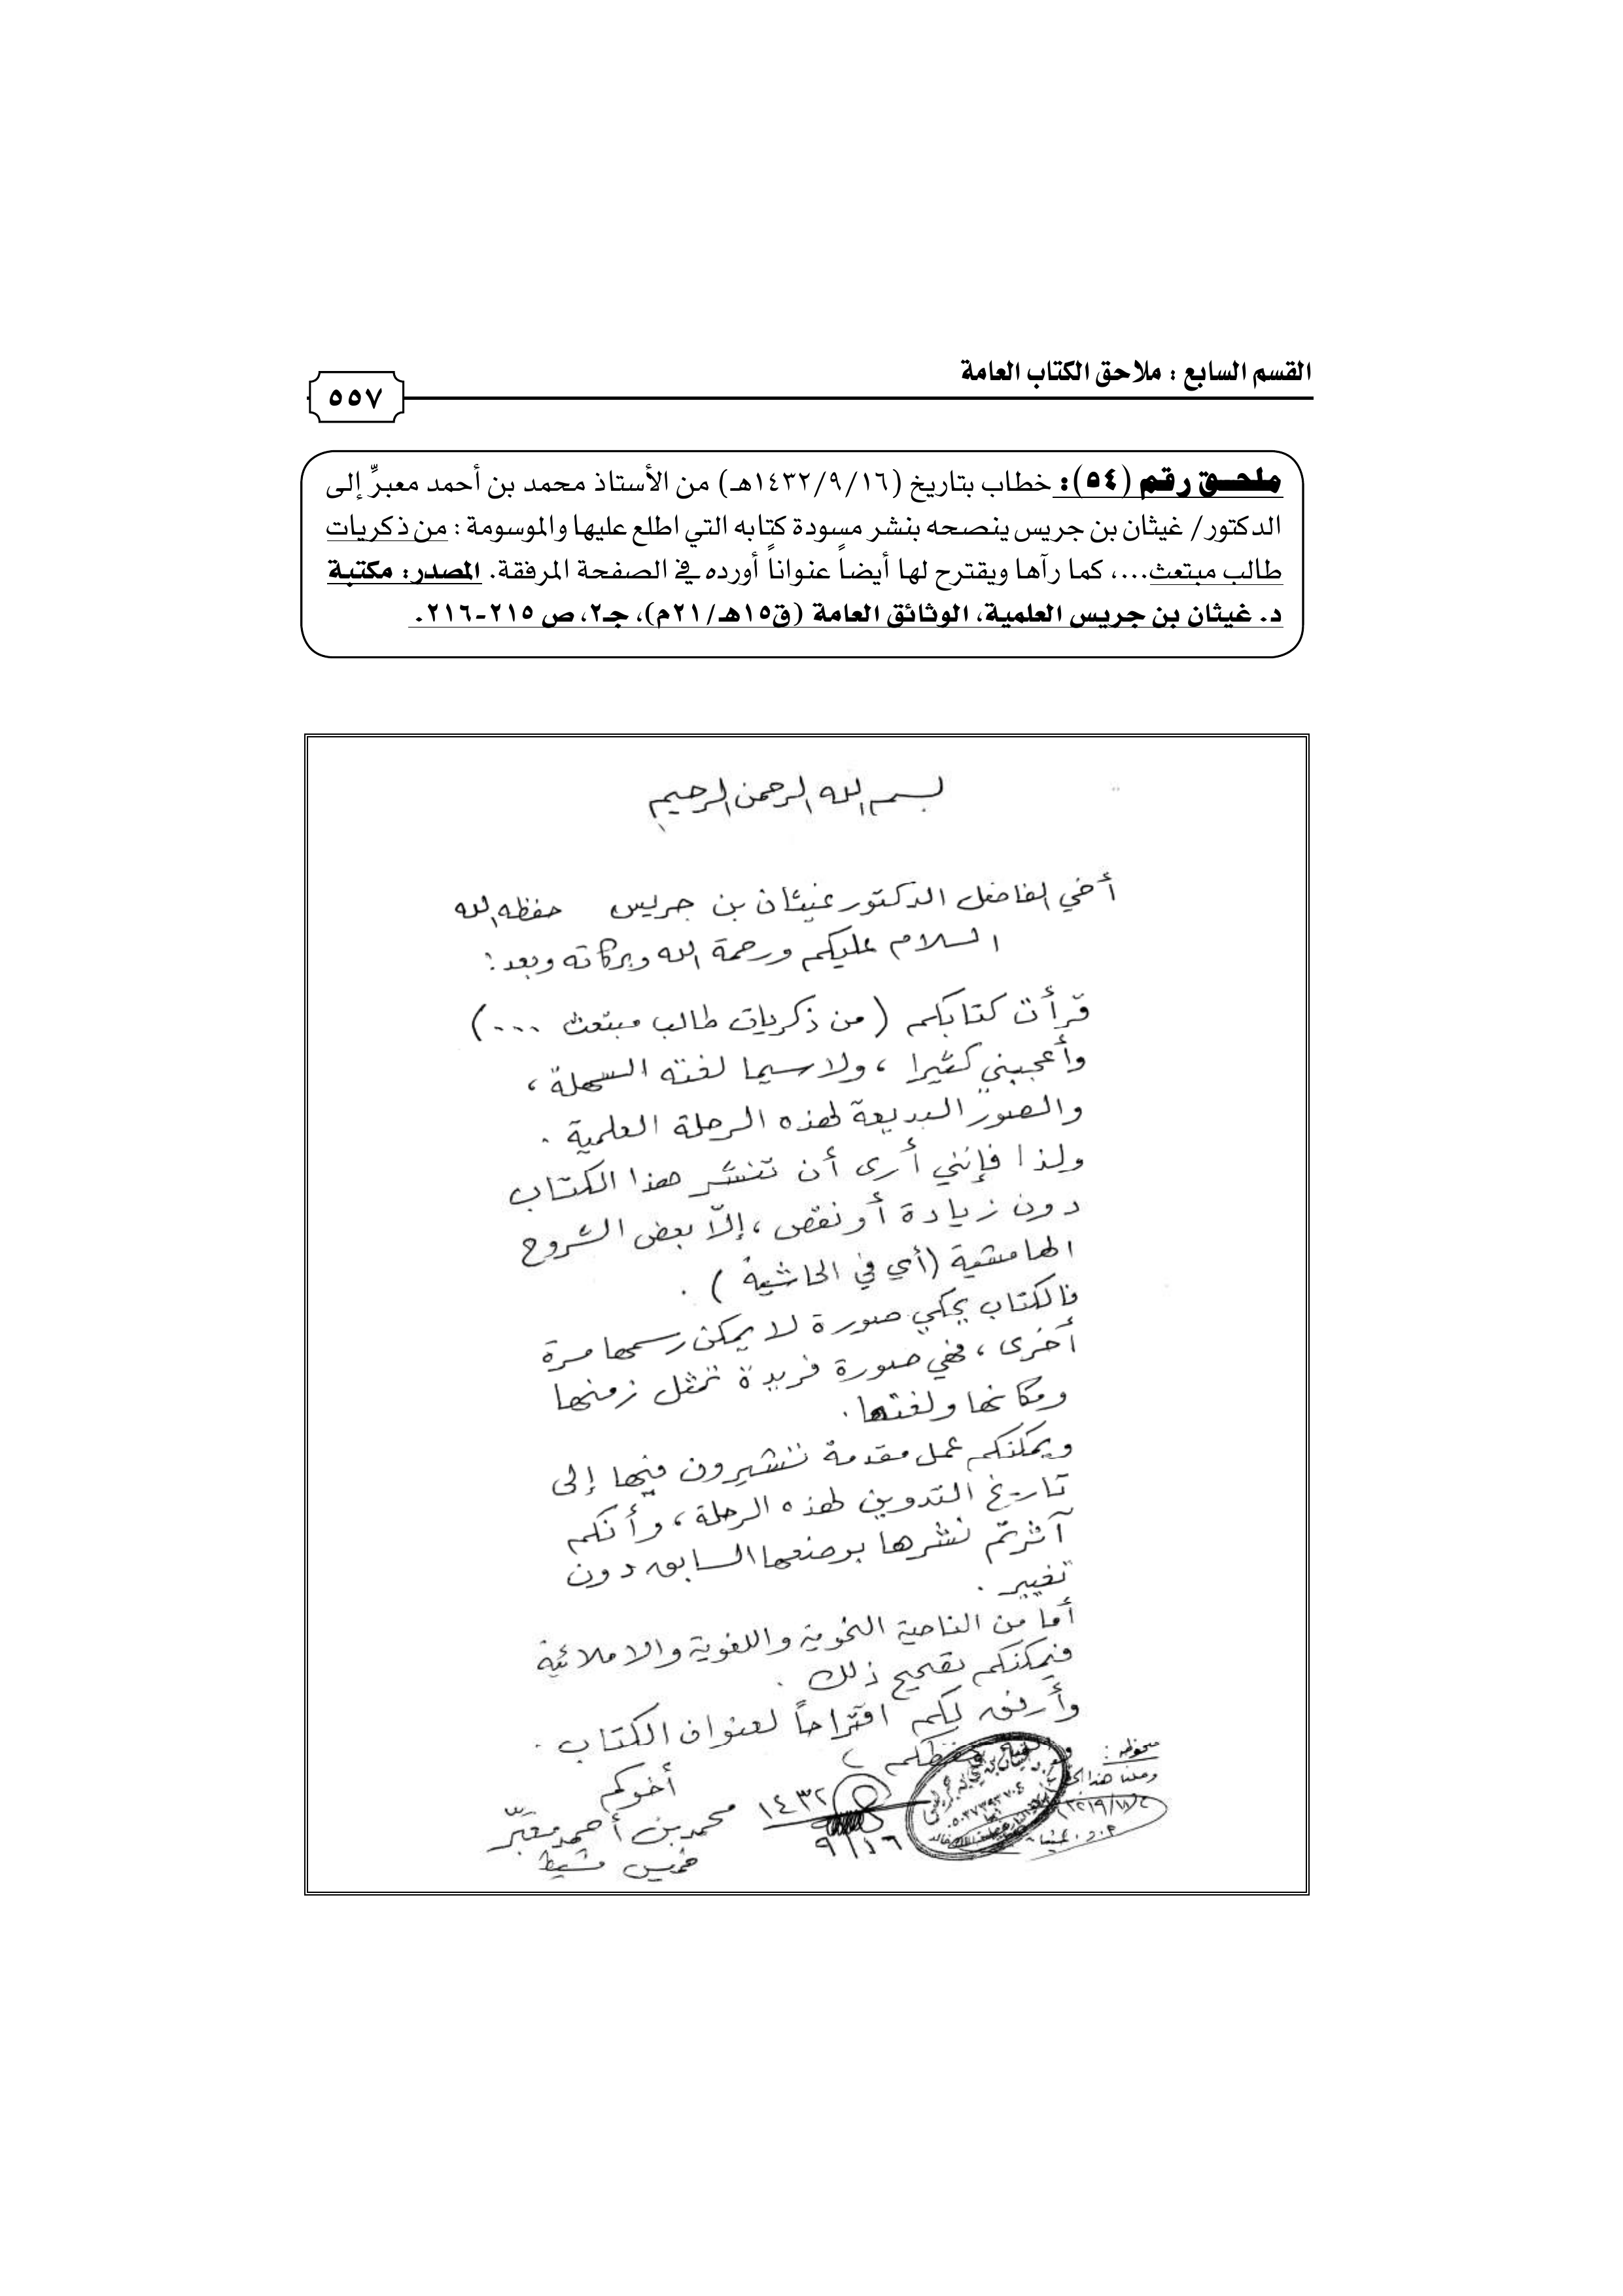 القسم السابع : ملاحق الكتاب العامة
٥٥٧
ملحق رقم (٥٤): خطاب بتاريخ (١٤٣٢/٩/١٦هـ) من الأستاذ محمد بن أحمد معبرِّ إلى
الدكتور/ غيثان بن جريس ينصحه بنشر مسودة كتابه التي اطلع عليها والموسومة : من ذكريات
طالب مبتعث...، كما رآها ويقترح لها أيضاً عنواناً أورده في الصفحة المرفقة. المصدر: مكتبة
د. غيثان بن جريس العلمية، الوثائق العامة (ق١٥هـ/٢١م)، جـ٢، ص ٢١٥-٢١٦.
بسم الله الرحمن الرحيم
أخي الفاضل الدكتور غيثان بن جريس حفظه الله
السلام عليكم ورحمة الله وبركاته وبعد :
قرأت كتابكم (من ذكريات طالب مبتعث ...)
وأعجبني كثيرا ، ولا سيما لغته السهلة ،
والصور البديعة لهذه الرحلة العلمية .
ولذا فإنني أرى أن تنشر هذا الكتاب
دون زيادة أو نقص ، إلاّ بعض الشروح
الهامشية (أي في الحاشية) .
فالكتاب يحكي صورة لا يمكن رسمها مرة
أخرى ، فهي صورة فريدة تمثل زمنها
ومكانها ولغتها .
ويمكنكم عمل مقدمة تشيرون فيها إلى
تاريخ التدوين لهذه الرحلة ، وأنكم
آثرتم نشرها بوضعها السابق دون
تغيير .
أما من الناحية النحوية واللغوية والاملائية
فيمكنكم تصحيح ذلك .
وأرفق لكم اقتراحاً لعنوان الكتاب .
أخوكم
محمد بن أحمد معبّر
خميس مشيط
١٤٣٢
٩/١٦